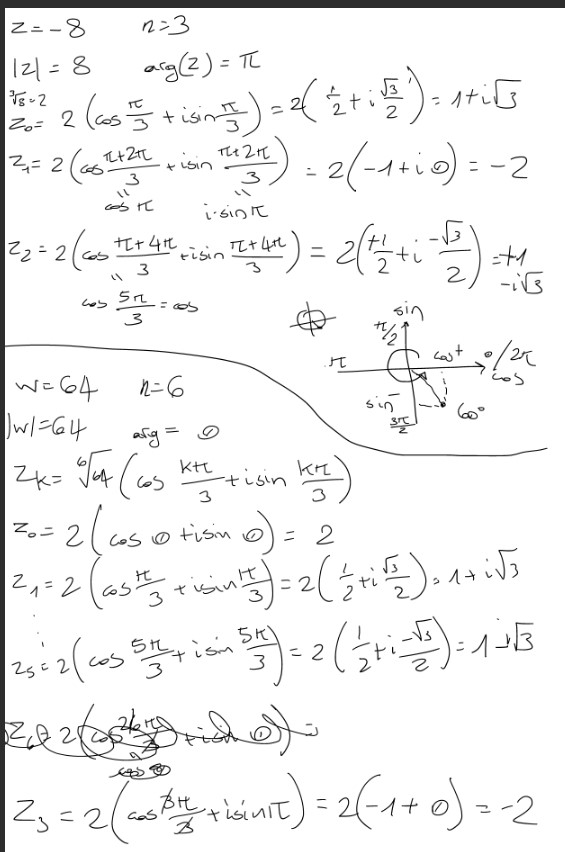 z=-8 n=3
|z|=8 arg(z)=π
∛8=2
z₀= 2(cos π/3 + i sin π/3) = 2(1/2 + i √3/2) = 1+i√3
z₁= 2(cos (π+2π)/3 + i sin (π+2π)/3) = 2(-1+i 0) = -2
" "
cos π i·sin π
z₂= 2(cos (π+4π)/3 + i sin (π+4π)/3) = 2(+1/2 + i -√3/2) = +1 -i√3
"
cos 5π/3 = cos
sin
π/2
π cos+ 0/2π
cos
sin- 60°
3π/2
w=64 n=6
|w|=64 arg = 0
zk= ⁶√64 (cos kπ/3 + i sin kπ/3)
z₀= 2(cos 0 + i sin 0) = 2
z₁= 2(cos π/3 + i sin π/3) = 2(1/2 + i √3/2) = 1+i√3
⋮
z₅= 2(cos 5π/3 + i sin 5π/3) = 2(1/2 + i -√3/2) = 1-i√3
z₃ = 2(cos 3π/3 + i sin π) = 2(-1+0) = -2